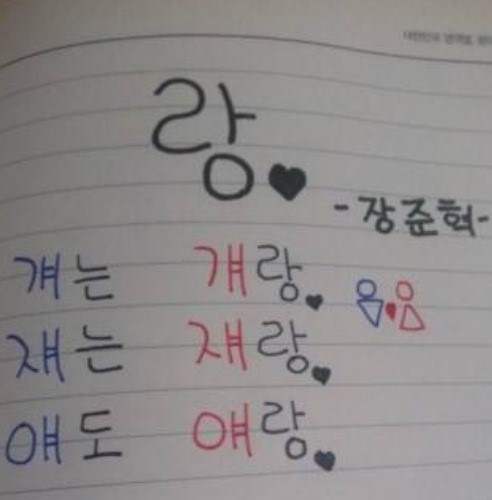 랑
-장준혁-
걔는 걔랑
쟤는 쟤랑
얘도 얘랑